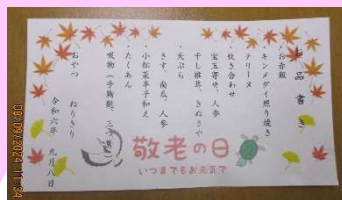 お品書き
・お赤飯
・キンメダイ照り焼き
・テリーヌ
・炊き合わせ
宝玉寄せ、人参
干し椎茸、きぬさや
・天ぷら
きす、南瓜、人参
・小松菜辛子和え
・たくあん
・吸物(手鞠麩、三つ葉)
おやつ
ねりきり
令和六年 九月八日
敬老の日
いつまでもお元気で
08/09/2024 11:34